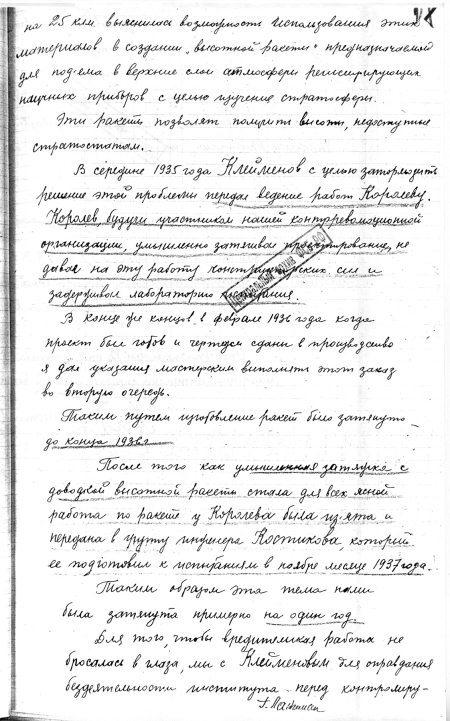 на 25 клм. выяснилась возможность использования этих
материалов в создании "высотной ракеты" предназначаемой
для подъема в верхние слои атмосферы регистрирующих
научных приборов с целью изучение стратосферы.
Эти ракеты позволят получить высоты, недоступные
стратостатам.
В середине 1935 года Клейменов с целью затормозить
решение этой проблемы передал ведение работ Королеву.
Королев будучи участником нашей контрреволюционной
организации, умышленно затягивал проектирование, не
давал на эту работу конструкторских сил и
задерживал лабораторию испытания.
В конце же концов в феврале 1936 года когда
проект был готов и чертежи сданы в производство
я дал указания мастерским выполнять этот заказ
во вторую очередь.
Таким путем изготовление ракет было затянуто
до конца 1936 г.
После того как умышленная затяжка с
доводкой высотной ракеты стала для всех ясной
работа по ракете у Королева была изъята и
передана в группу инженера Костикова, который
ее подготовил к испытаниям в ноябре месяце 1937 года.
Таким образом эта тема нами
была затянута примерно на один год.
Для того, чтобы вредительская работа не
бросалась в глаза, мы с Клейменовым для оправдания
бездеятельности института перед контролиру-
Г. Лангемак